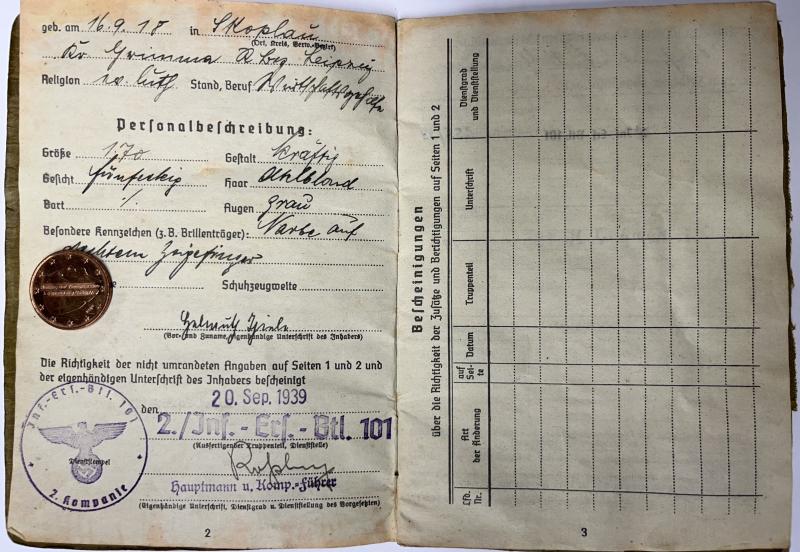 geb. am 16.9.18 in Skoplau
(Ort, Kreis, Verw.-Bezirk)
Kr Grimma R.bez. Leipzig
Religion ev. luth Stand, Beruf Wirtschaftsgehilfe
Personalbeschreibung:
Größe 170 Gestalt kräftig
Gesicht fünfeckig Haar dklblond
Bart ./. Augen grau
Besondere Kennzeichen (z.B. Brillenträger): Narbe auf
rechtem Zeigefinger
Schuhzeugweite
Helmuth Thiele
(Vor- und Zuname, eigenhändige Unterschrift des Inhabers)
Die Richtigkeit der nicht umrandeten Angaben auf Seiten 1 und 2 und
der eigenhändigen Unterschrift des Inhabers bescheinigt
den 20. Sep. 1939
2./Inf.-Ers.-Btl. 101
(Ausfertigender Truppenteil, Dienststelle)
Hauptmann u. Komp.-Führer
(Eigenhändige Unterschrift, Dienstgrad u. Dienststellung des Vorgesetzten)
Inf.-Ers.-Btl. 101
Dienststempel
2. Kompanie
2
Bescheinigungen
über die Richtigkeit der Zusätze und Berichtigungen auf Seiten 1 und 2
Lfd. Nr.
Art der Änderung
auf Seite
Datum
Truppenteil
Unterschrift
Dienstgrad und Dienststellung
3